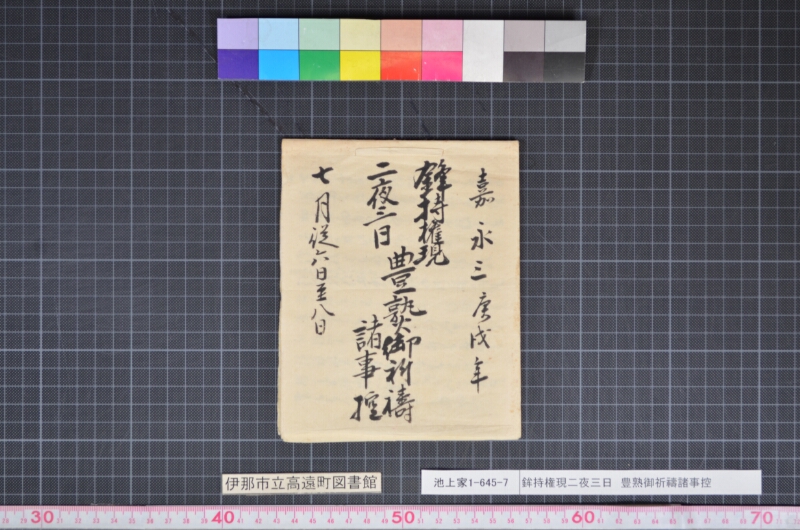 嘉永三庚戌年
鉾持権現
二夜三日
豊熟御祈禱
諸事控
七月従六日至八日
伊那市立高遠町図書館
池上家1-645-7 鉾持権現二夜三日 豊熟御祈禱諸事控
30 40 50 60 70